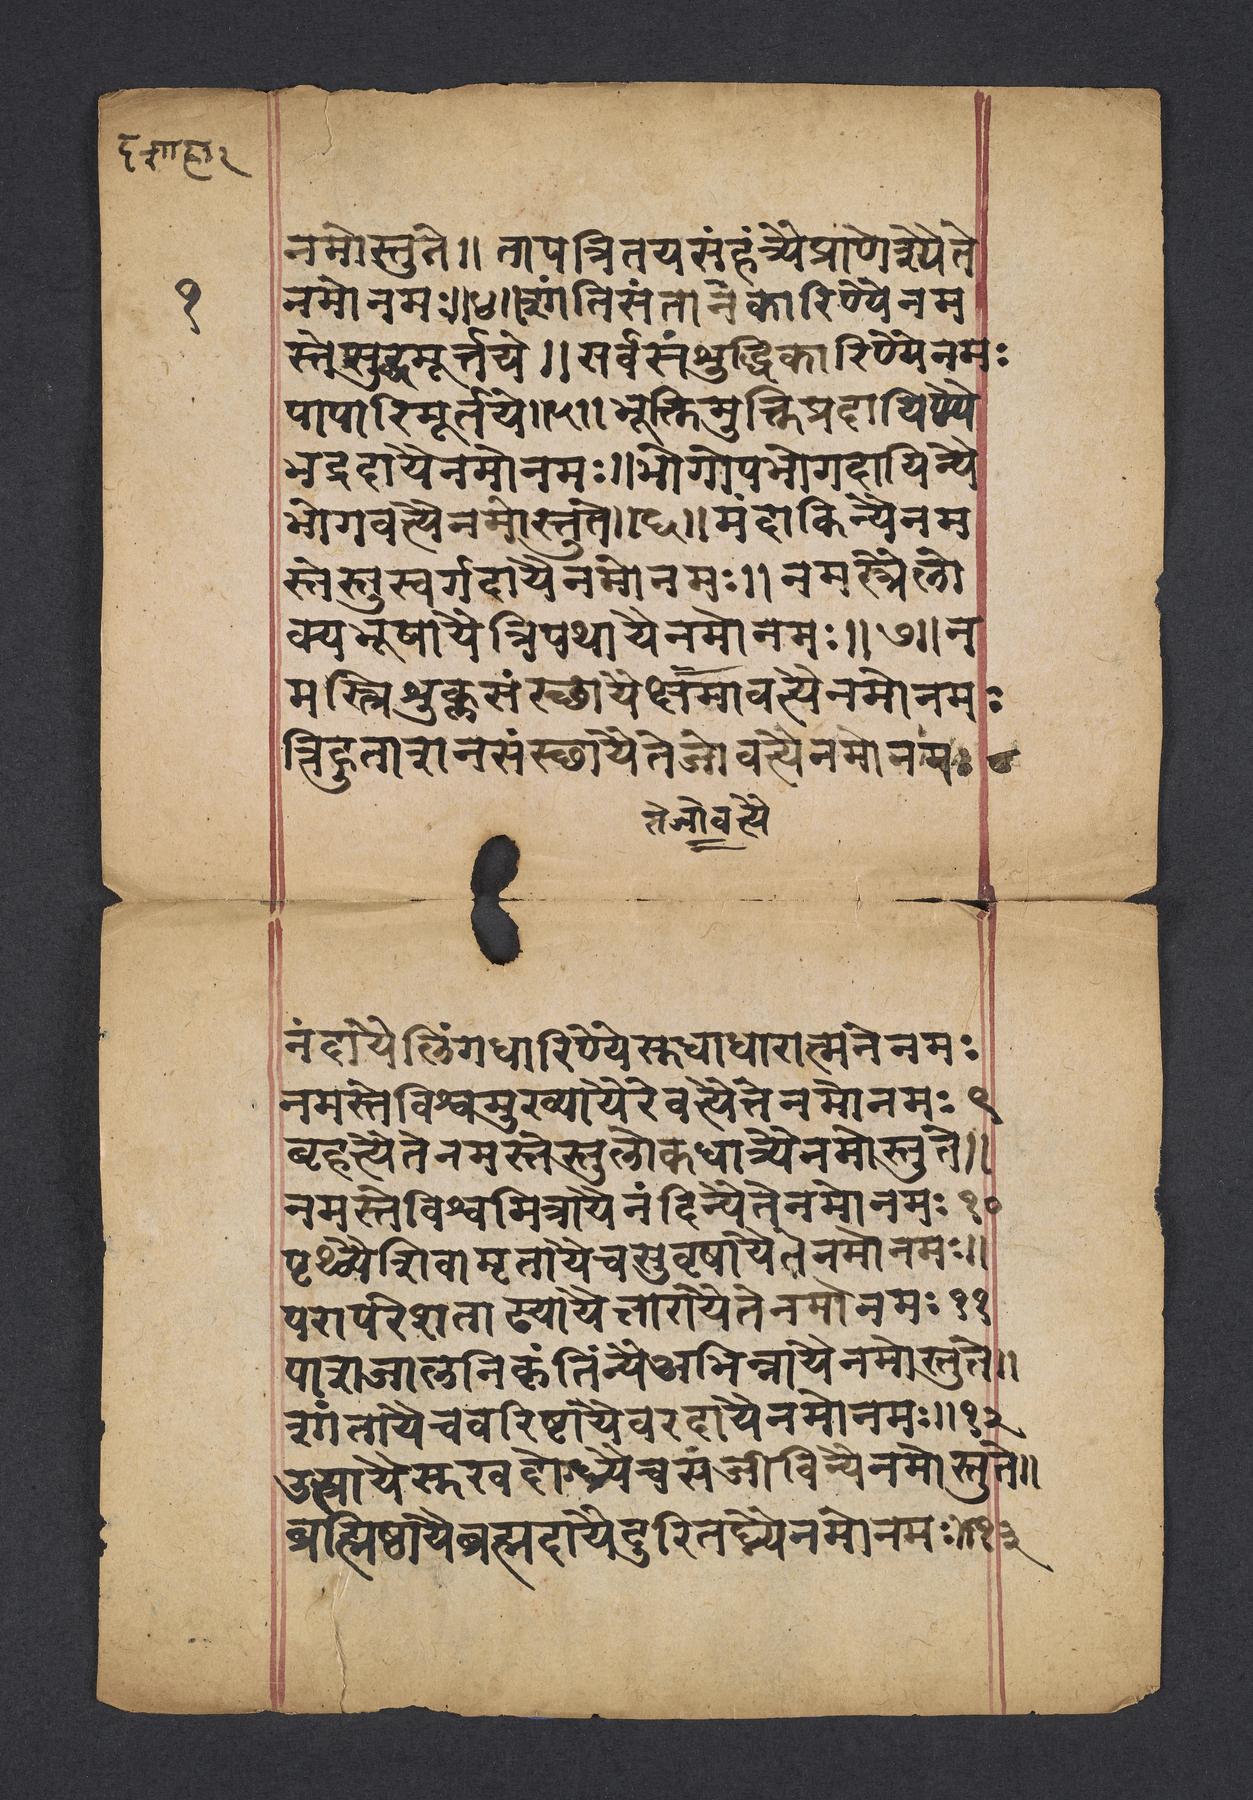 दशहरा
१
नमोस्तुते॥ तापत्रितयसंहंत्र्यैप्राणेश्यैते
नमोनमः॥४॥शांतिसंतानकारिण्यैनम
स्तेसुद्धमूर्त्तये॥ सर्वसंशुद्धिकारिण्यैनमः
पापारिमूर्तये॥५॥भूक्तिमुक्तिप्रदायिण्यै
भद्रदायैनमोनमः॥भोगोपभोगदायिन्यै
भोगवत्यैनमोस्तुते॥६॥मंदाकिन्यैनम
स्तेस्तुस्वर्गदायैनमोनमः॥ नमस्त्रैलो
क्यभूषायैत्रिपथायैनमोनमः॥७॥न
मस्त्रिशुक्लसंस्छायैक्षमावत्यैनमोनमः
त्रिहुताशनसंस्छायैतेजोवत्यैनमोनमः ८
तेजोवत्यै
नंदायैलिंगधारिण्यैस्तधाधारात्मनेनमः
नमस्तेविश्वमुख्यायैरेवत्यैतेनमोनमः ९
बृहत्यैतेनमस्तेस्तुलोकधात्र्यैनमोस्तुते॥
नमस्तेविश्वमित्रायैनंदिन्यैतेनमोनमः १०
पृथ्व्यैशिवामृतायैचसुवृषायैतेनमोनमः॥
परापरशताढ्यायैतारायैतेनमोनमः ११
पाशजालनिकृंतिंन्यैअभिन्नायैनमोस्तुते॥
शांतायैचवरिष्टायैवरदायैनमोनमः॥१२
उस्रायैस्तखदोग्ध्र्यैचसंजीविन्यैनमोस्तुते॥
ब्रह्मिष्ठायैब्रह्मदायैदुरितघ्न्यैनमोनमः॥१३